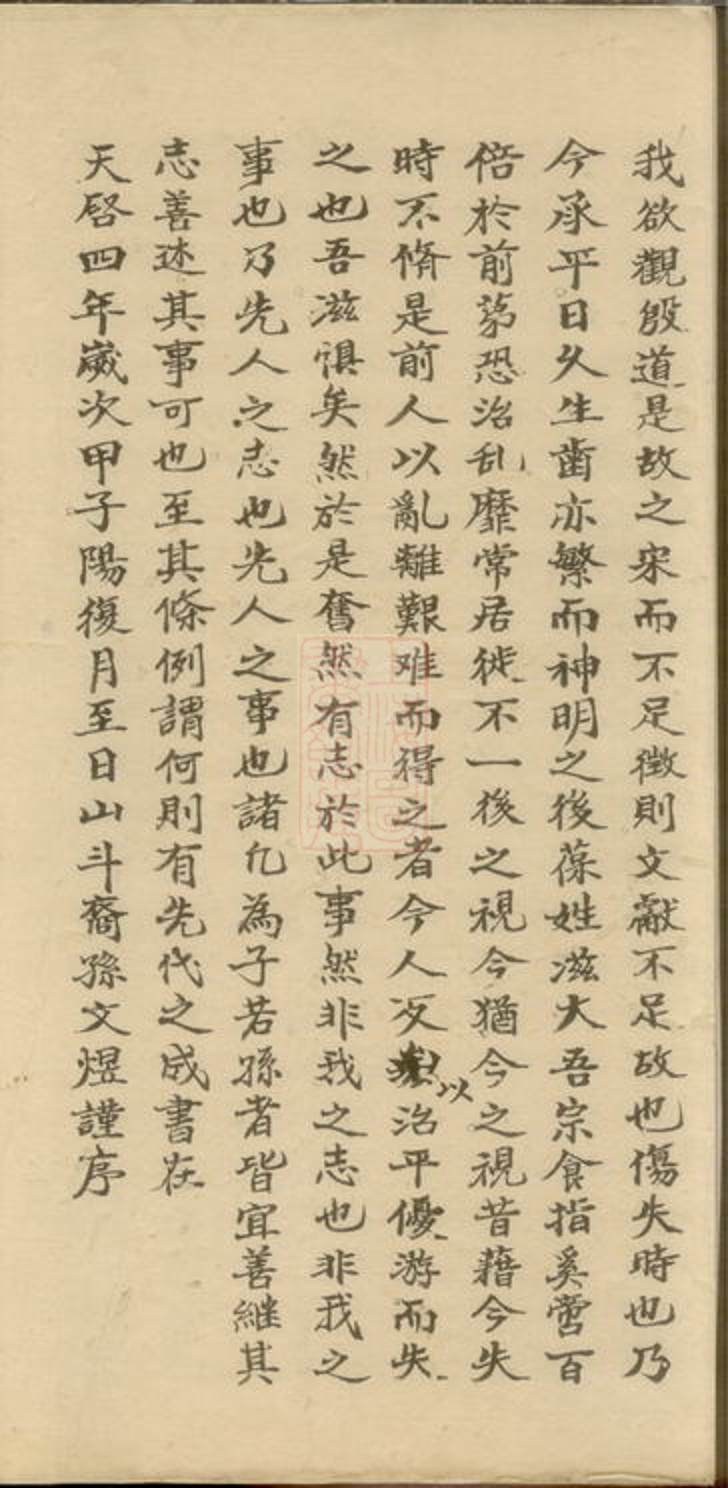 我欲觀殷道是故之宋而不足徵則文獻不足故也傷失時也乃
今承平日久生齒亦繁而神明之後葆姓滋大吾宗食指奚啻百
倍於前苐恐治乱靡常居徙不一後之視今猶今之視昔藉今失
時不脩是前人以亂離艱难而得之者今人反以治平優游而失
之也吾滋惧矣然於是奮然有志於此事然非我之志也非我之
事也乃先人之志也先人之事也諸凡為子若孫者皆宜善継其
志善述其事可也至其條例謂何則有先代之成書在
天啓四年嵗次甲子陽復月至日山斗裔孫文煜謹序